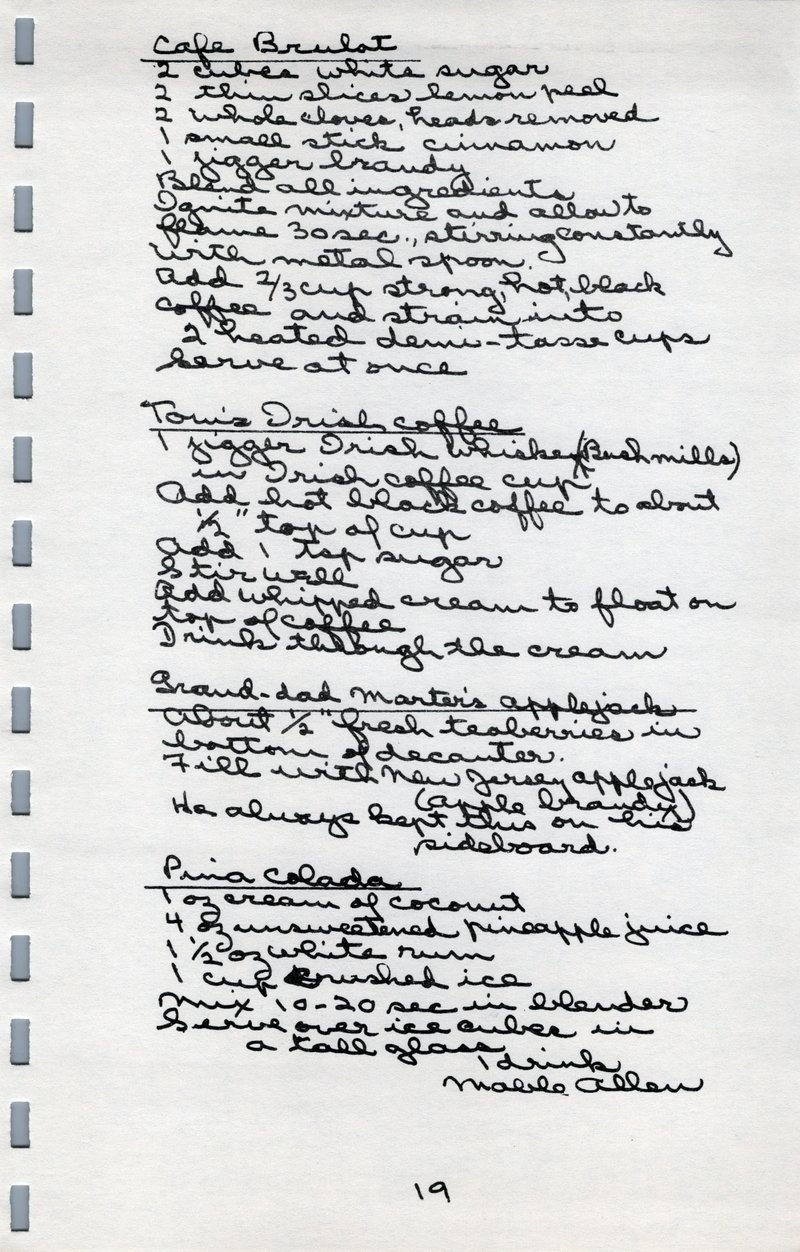 Cafe Brulot
2 cubes white sugar
2 thin slices lemon peel
2 whole cloves, heads removed
1 small stick cinnamon
1 jigger brandy
Blend all ingredients
Ignite mixture and allow to
flame 30 sec., stirring constantly
with metal spoon.
Add 2/3 cup strong, hot, black
coffee and strain into
2 heated demi-tasse cups
Serve at once
Tom's Irish coffee
1 jigger Irish Whiskey (Bushmills)
in Irish coffee cup
Add hot black coffee to about
1/2" top of cup
Add 1 tsp sugar
Stir well
Add whipped cream to float on
top of coffee
Drink through the cream
Grand-dad Marter's applejack
About 1/2" fresh teaberries in
bottom of decanter.
Fill with New Jersey applejack
(apple brandy)
He always kept this on his
sideboard.
Pina Colada
1 oz cream of coconut
4 oz unsweetened pineapple juice
1 1/2 oz white rum
1 cup crushed ice
Mix 10-20 sec in blender
Serve over ice cubes in
a tall glass
1 drink
Mable Allen
19